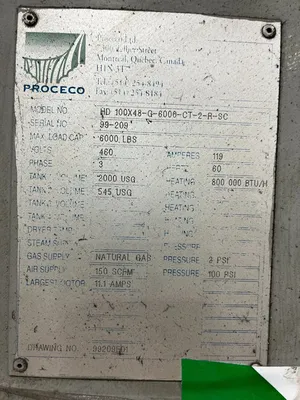 Proceco Ltd.
Street
Montreal, Quebec, Canada
H1N 3T7
Tel: (514) 254-8494
Fax: (514) 254-8184
PROCECO
MODEL NO HD 100X48-G-6000-CT-2-R-SC
SERIAL NO 99-209
MAX LOAD CAP 6000 LBS
VOLTS 460 AMPERES 119
PHASE 3 HERTZ 60
TANK VOLUME 2000 USG HEATING 800 000 BTU/H
TANK VOLUME 545 USG HEATING
TANK VOLUME
TANK
DRYER
STEAM PRESSURE
GAS SUPPLY NATURAL GAS PRESSURE 3 PSI
AIR SUPPLY 150 SCFM PRESSURE 100 PSI
LARGEST MOTOR 11.1 AMPS
DRAWING NO.